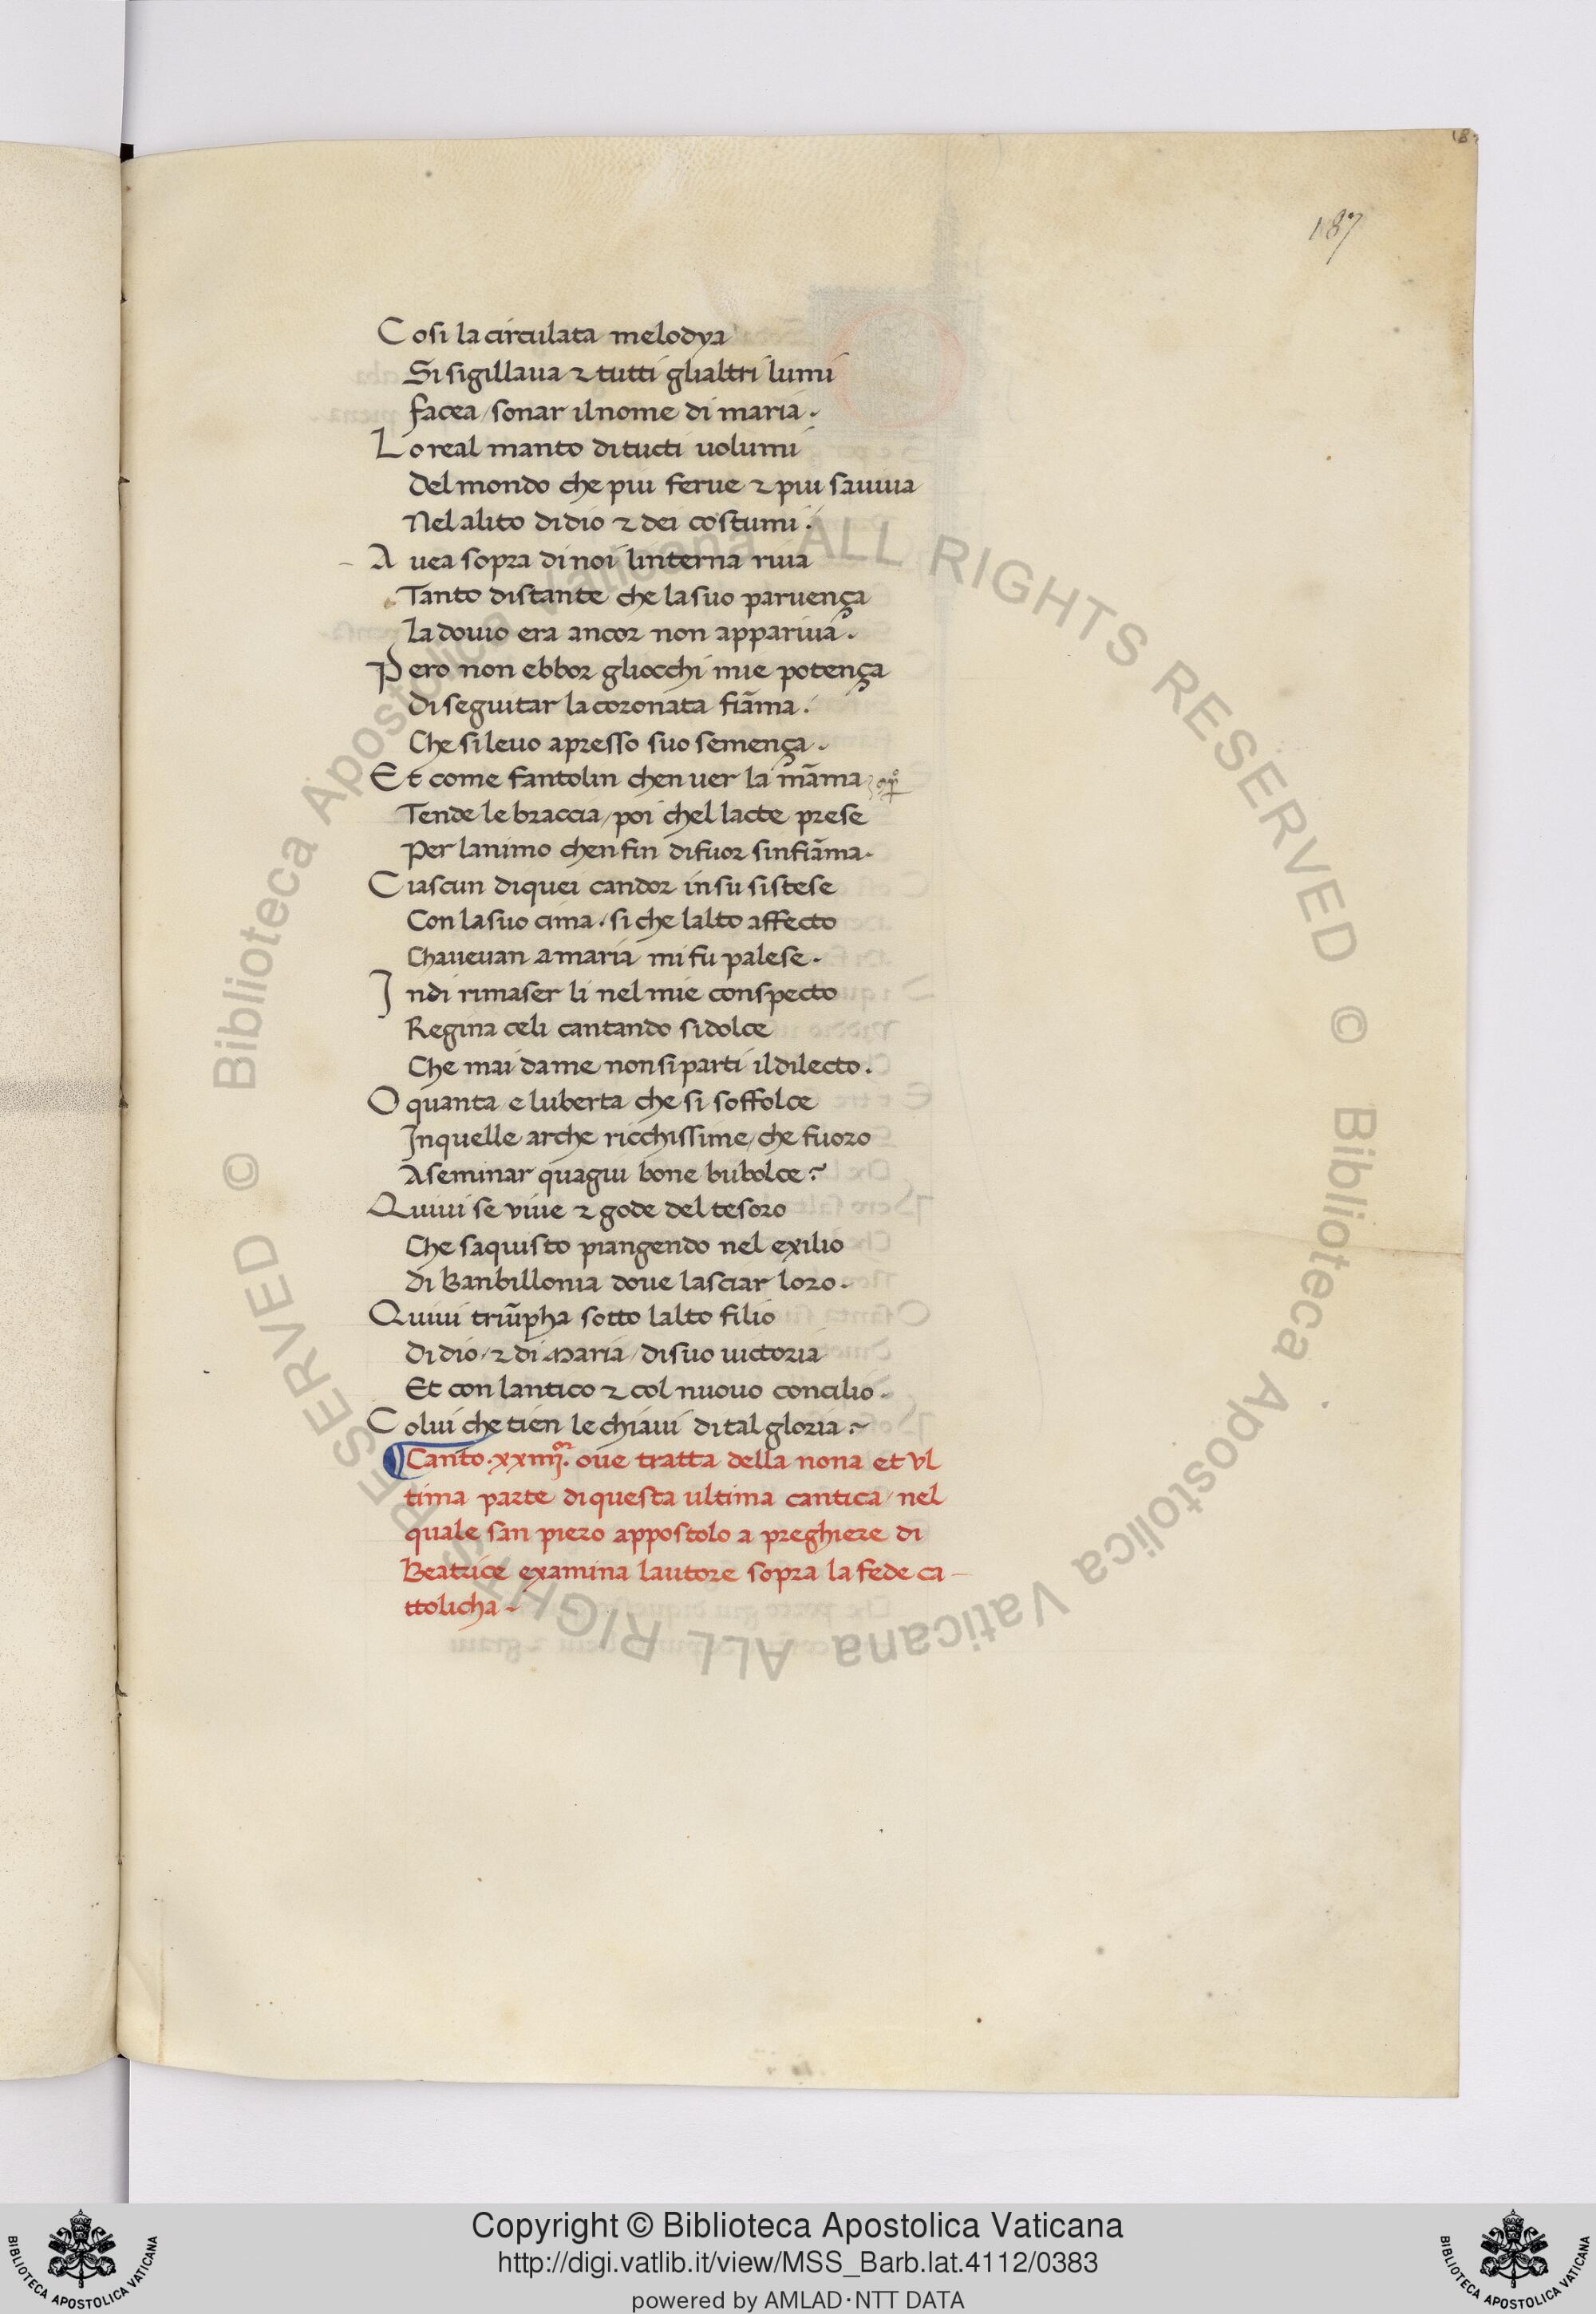 187
Cosi la circulata melodya
Si sigillaua ⁊ tutti glialtri lumi
facea / sonar ilnome di maria .
Lo real manto ditucti uolumi
Del mondo che piu ferue ⁊ piu sauiua
Nel alito didio ⁊ dei costumi .
Auea sopra dinoi linterna riua
Tanto distante che lasuo paruença
La douio era ancor non appariua .
Pero non ebbor gliocchi mie potença
Diseguitar lacoronata fiãma .
Che sileuo apresso suo semença .
Et come fantolin chenuer la mãma
Tende le braccia / poi chel lacte prese
Per lanimo chenfin difuor sinfiãma .
Ciascun diquei candor insu sistese
Con lasuo cima . si che lalto affecto
Chaueuan amaria mi fu palese .
Indi rimaser li nel mie conspecto
Regina celi cantando sidolce
Che mai dame nonsiparti ildilecto .
O quanta e luberta che si soffolce
Inquelle arche ricchissime / che fuoro
Aseminar quagiu bone bubolce ?
Quiui se viue ⁊ gode del tesoro
Che saquisto piangendo nel exilio
Di Banbillonia doue lasciar loro .
Quiui triũpha sotto lalto filio
Didio / ⁊ di Maria / disuo uictoria
Et con lantico ⁊ col nuouo concilio .
Colui che tien le chiaui dital gloria :~
Canto . xxiiij . oue tratta della nona et vl
tima parte diquesta ultima cantica / nel
quale san piero appostolo a preghiere di
Beatrice examina lautore sopra la fede ca -
ttolicha ~
© Biblioteca Apostolica Vaticana ALL RIGHTS RESERVED © Biblioteca Apostolica Vaticana ALL RIGHTS RESERVED
Copyright © Biblioteca Apostolica Vaticana
http://digi.vatlib.it/view/MSS_Barb.lat.4112/0383
powered by AMLAD·NTT DATA
BIBLIOTECA APOSTOLICA VATICANA
BIBLIOTECA APOSTOLICA VATICANA